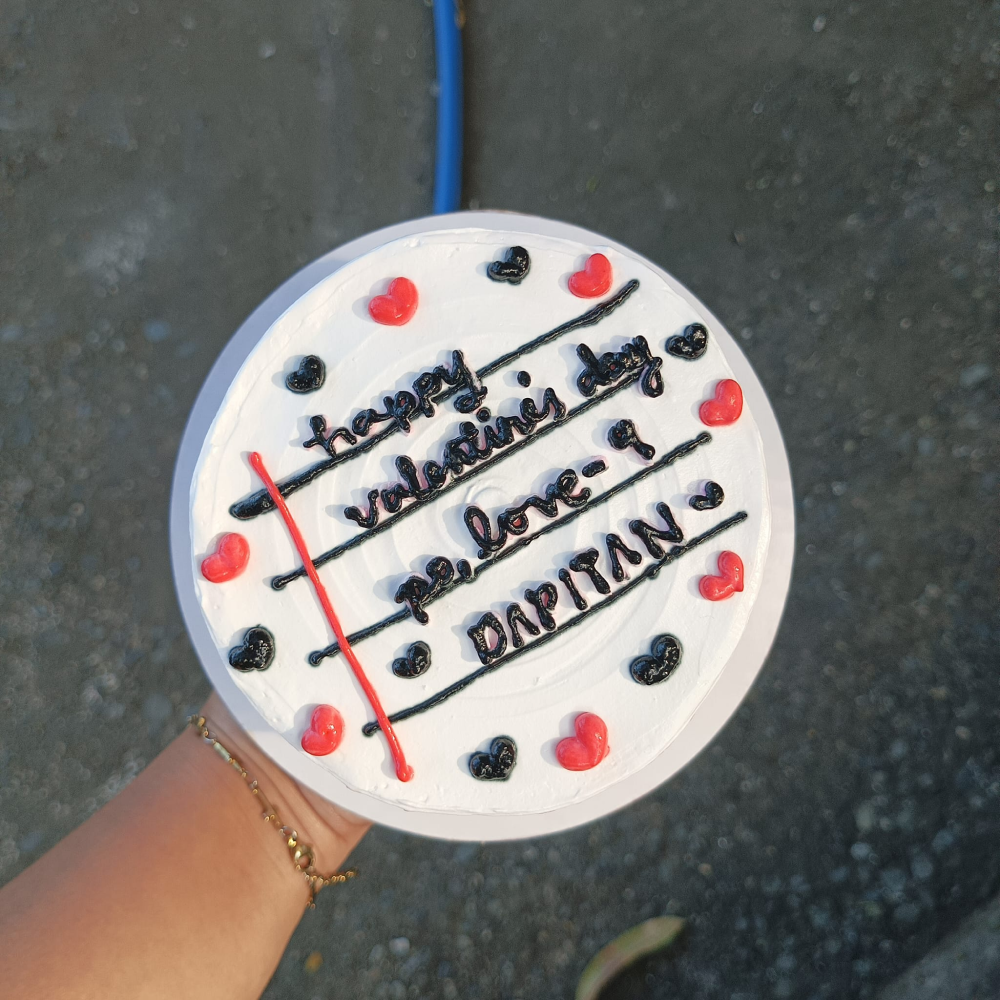 happy
valentine's day
po, love- 9
DAPITAN